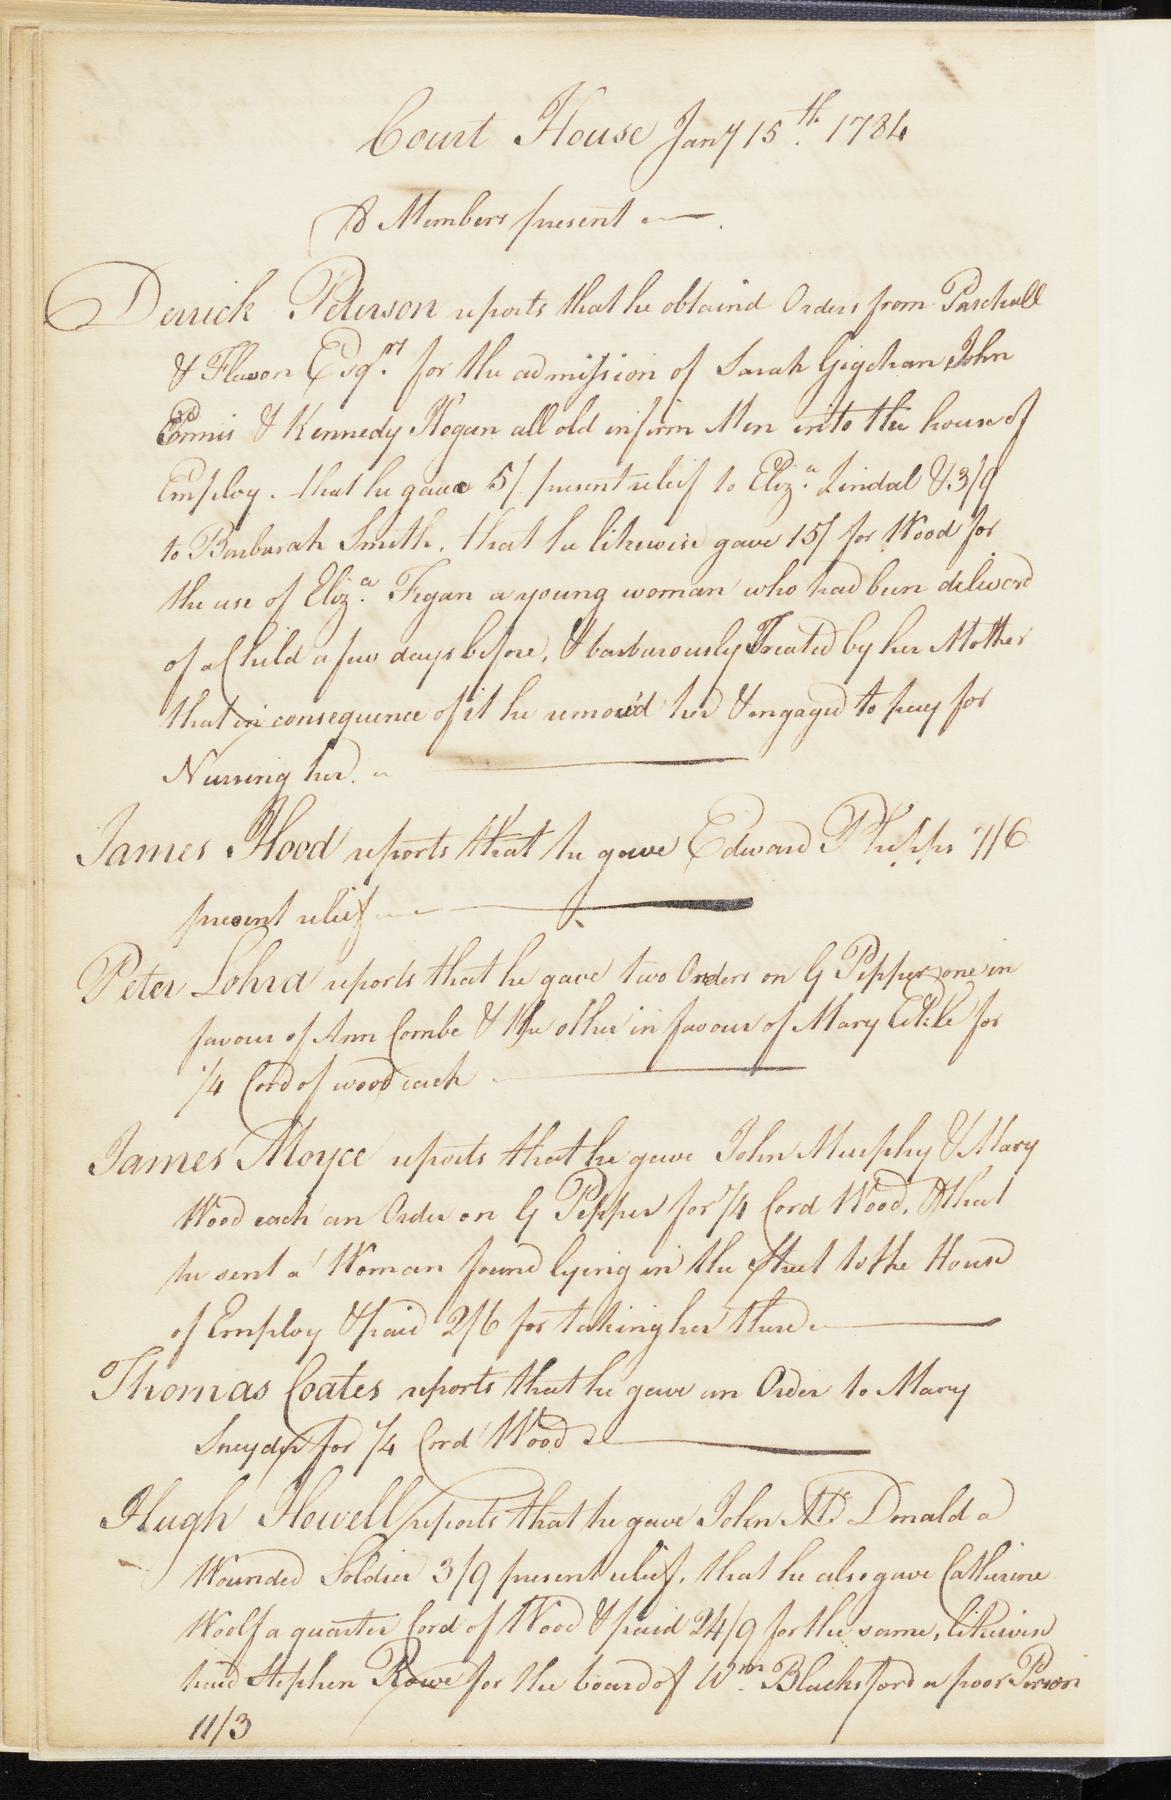 Court House Jany 15th. 1784
8 Members present
Derrick Peterson reports that he obtaind Orders from Paschall
& Fleeson Esqrs. for the admission of Sarah Gigehan John
Ennis & Kennedy Hogan all old infirm Men into the house of
Employ. that he gave 5/ present relief to Eliza. Lindal & 3/9
to Barbarah Smith. that he likewise gave 15/ for Wood for
the use of Eliza. Fegan a young woman who had been deliverd
of a Child a few days before, & barbarously Treated by her Mother
that in consequence of it he remov'd her & engaged to pay for
Nursing her.
James Hood reports that he gave Edward Phipps 7/6
present relief
Peter Lohra reports that he gave two Orders on G Pepper one in
favour of Ann Combe & the other in favour of Mary for
1/4 Cord of wood each
James Moyce reports that he gave John Murphy & Mary
Wood each an Order on G Pepper for 1/4 Cord Wood, & that
he sent a Woman found lying in the Street to the House
of Employ & paid 2/6 for taking her there
Thomas Coates reports that he gave an Order to Mary
Sneyder for 1/4 Cord Wood
Hugh Howell reports that he gave John Mc. Donald a
Wounded Soldier 3/9 present relief, that he also gave Catherine
Woolf a quarter Cord of Wood & paid 24/9 for the same, likewise
paid Stephen Rowe for the board of Wm. Blacksford a poor Person
11/3